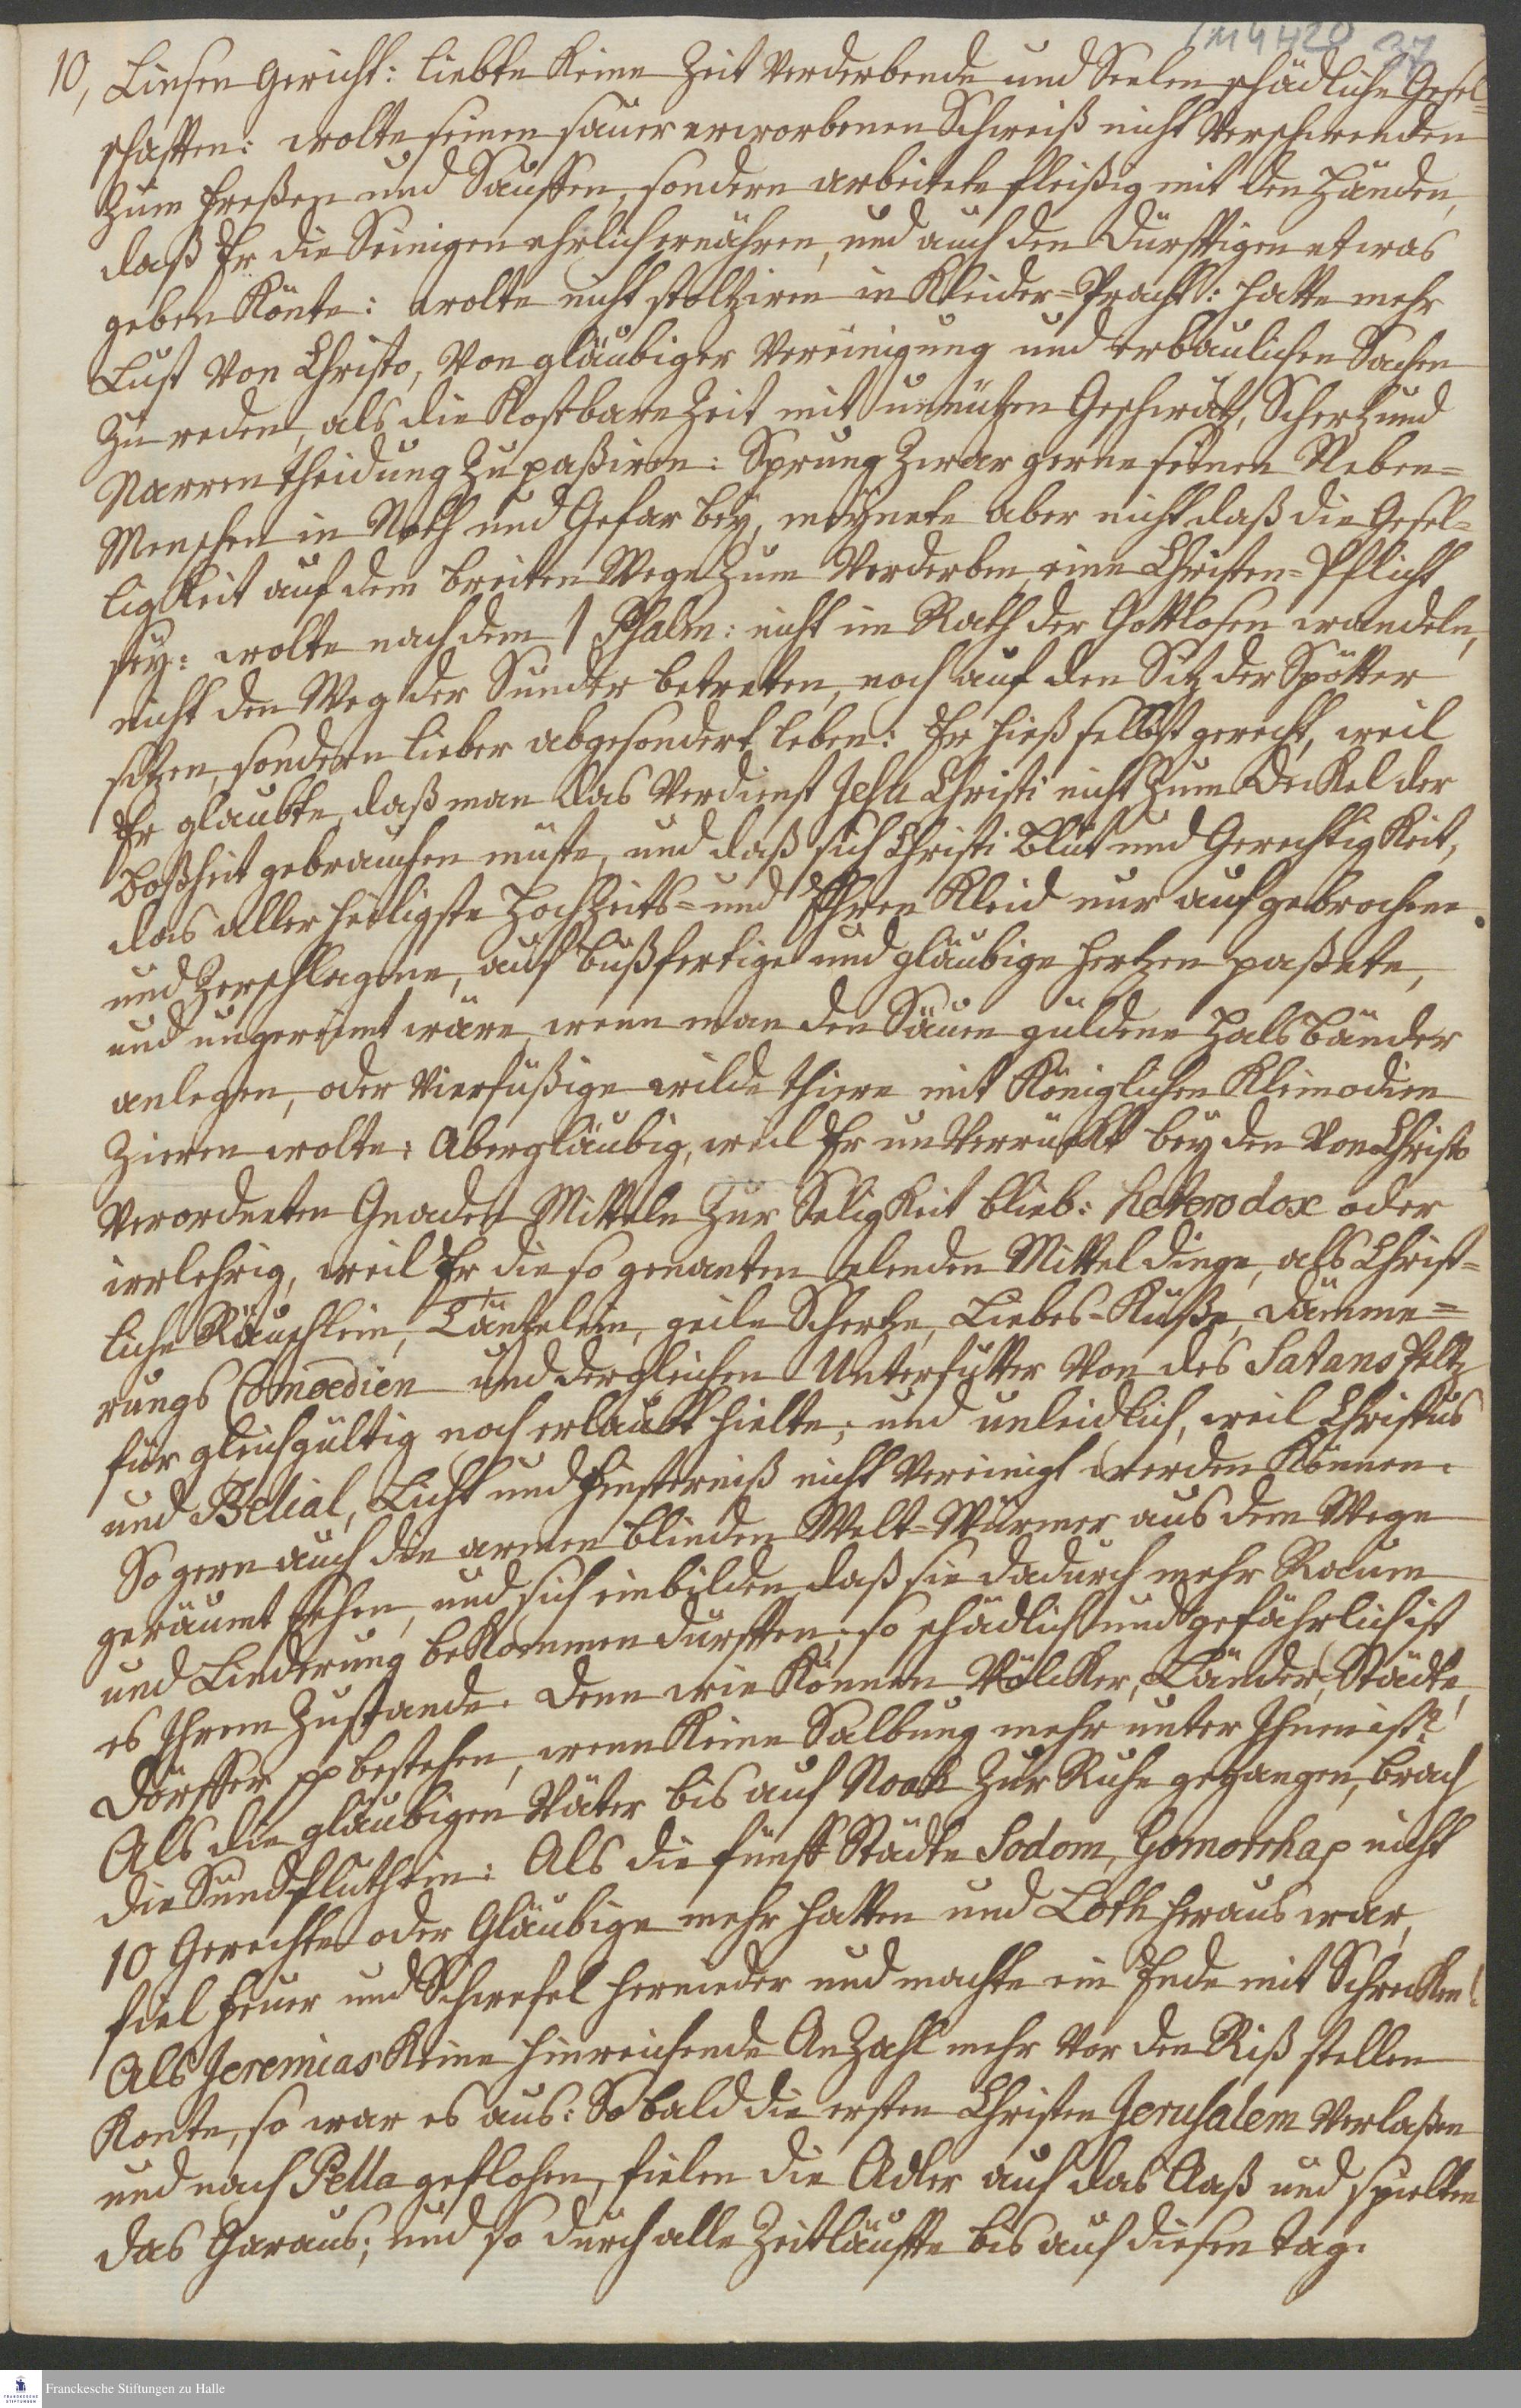 1M4H20 37
10, Linsen Gericht: liebte keine Zeit verderbende und Seelen schädliche Gesel=
schafften: wolte seinen sauer erworbenen Schweiß nicht verschwenden
zum Freßen und Sauffen, sondern arbeitete fleißig mit den Händen,
daß Er die Seinigen ehrlich ernähren, und auch den Dürfftigen etwas
geben könte: wolte nicht stoltziren in Kleider=Pracht: hatte mehr
Lust von Christo, von gläubiger Vereinigung und erbaulichen Sachen
zu reden, als die kostbare Zeit mit unnützen Geschwätz, Schertz und
Narrentheidung zu paßiren: Sprung zwar gerne seinen Neben=
Menschen in Noth und Gefar bey, meynete aber nicht daß die Gesel=
ligkeit auf dem breiten Wege zum Verderben eine Christen=Pflicht
sey: wolte nach dem 1 Psalm: nicht im Rath der Gottlosen wandeln,
nicht den Weg der Sunder betreten, noch auf den Sitz der Spötter
sitzen, sondern lieber abgesondert leben: Er hieß selbst gerecht, weil
Er glaubte, daß man das Verdienst Jesu Christi nicht zum Deckel der
Boßheit gebrauchen müste, und daß sich Christi Blut und Gerechtigkeit,
das aller heiligste Hochzeits= und Ehren Kleid nur auf gebrochene
und zerschlagene, auf bußfertige und gläubige Hertzen paßete,
und ungereimt wäre, wenn man den Säuen güldene Halsbänder
anlegen, oder vierfüßige wilde Thiere mit Königlichen Kleinodien
zieren wolte: Abergläubig, weil Er unverrückt bey den von Christo
verordneten Gnaden Mitteln zur Seligkeit blieb: heterodox oder
irrlehrig, weil Er die so genanten elenden Mitteldinge, als Christ=
liche Räuschlein, Täntzelein, geile Schertze, Liebes-Küße, Dämme=
rungs Comoedien und dergleichen Unterfutter von des Satans Peltz
für gleichgültig noch erlaubt hielte; und unleidlich, weil Christus
und Belial, Licht und Finsterniß nicht vereinigt werden können.
So gern auch die armen blinden Welt=Würmer aus dem Wege
geräumt sehen, und sich einbilden, daß sie dadurch mehr Raum
und Linderung bekommen durfften; so schädlich und gefährlich ist
es Ihrem Zustande. Denn wie können Völcker, Länder, Städte,
Dörffer pp bestehen, wenn keine Salbung mehr unter Ihnen ist?
Als die gläubigen Väter bis auf Noah zur Ruhe gegangen, brach
die Sundfluth ein: Als die fünff Städte Sodom, Gomorrha p nicht
10 Gerechte oder Gläubige mehr hatten und Loth heraus war,
fiel Feuer und Schwefel hernieder und machte ein Ende mit Schrecken.
Als Jeremias keine hinreichende Anzahl mehr vor den Riß stellen
konte, so war es aus: So bald die ersten Christen Jerusalem verlaßen
und nach Pella geflohen, fielen die Adler auf das Aaß und spielten
das Garaus; und so durch alle Zeitläuffte bis auf diesen Tag.
FRANCKESCHE STIFTUNGEN
Franckesche Stiftungen zu Halle